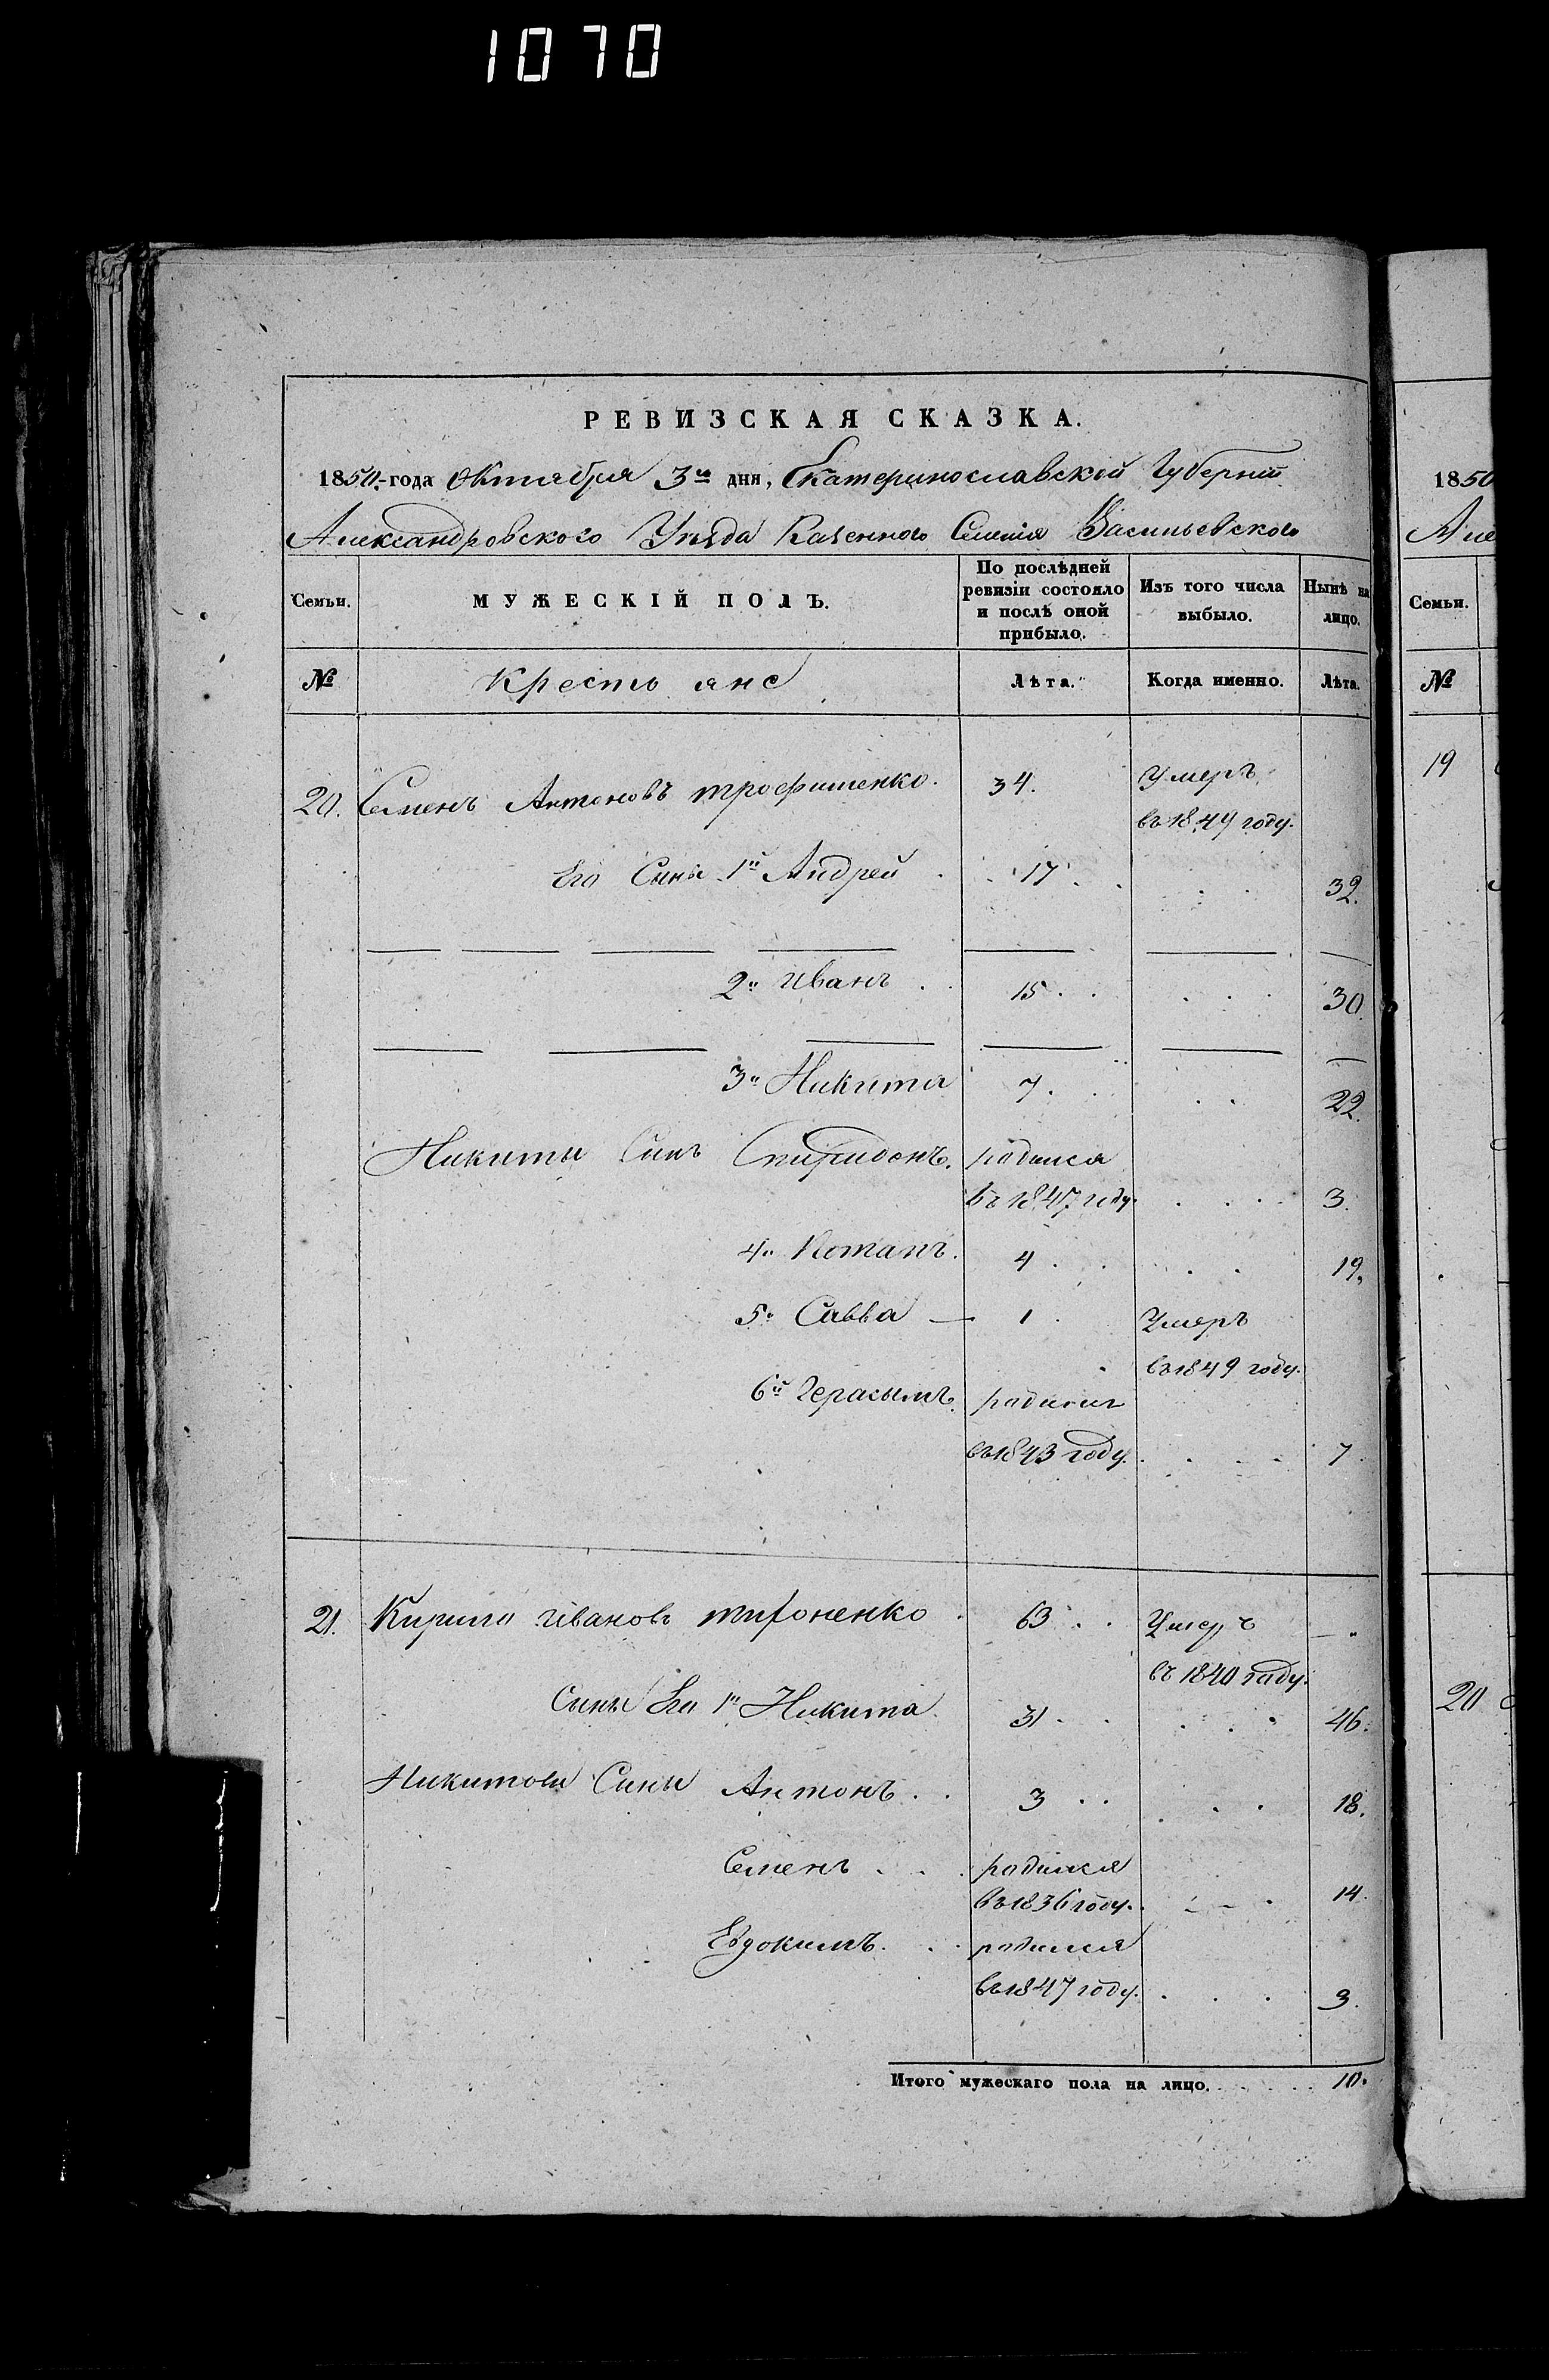 1070
РЕВИЗСКАЯ СКАЗКА.
1850-года Октября 3го дня, Екатеринославской Губерніи
Александровского Уѣзда Казенного Селенія Васильевского
Семьи.
МУЖЕСКІЙ ПОЛЪ.
По послѣдней ревизіи состояло и послѣ оной прибыло.
Изъ того числа выбыло.
Нынѣ на лицо.
№
Крестьяне
Лѣта.
Когда именно.
Лѣта.
20. Семенъ Антоновъ трофименко. 34. Умеръ
въ 1849 году.
Его Сыны 1й Андрей 17 32.
2й Иванъ 15 30.
3й Никита 7. 22.
Никиты Сынъ Спиридонъ. родился
въ 1847 году. 3.
4й Потапъ. 4 19.
5й Савва — 1 Умеръ
въ 1849 году.
6й Герасымъ. родился
въ 1843 году. 7.
21. Кирило Ивановъ тироненко 63 Умеръ —
въ 1840 году.
Сыны Его 1й Никита 31 46.
Никитовы Сыны Антонъ. 3 18.
Семенъ родился
въ 1836 году. 14.
Евдокимъ. родился
въ 1847 году. 3.
Итого мужескаго пола на лицо. 10.
1850
Але
Семьи.
№
19
20